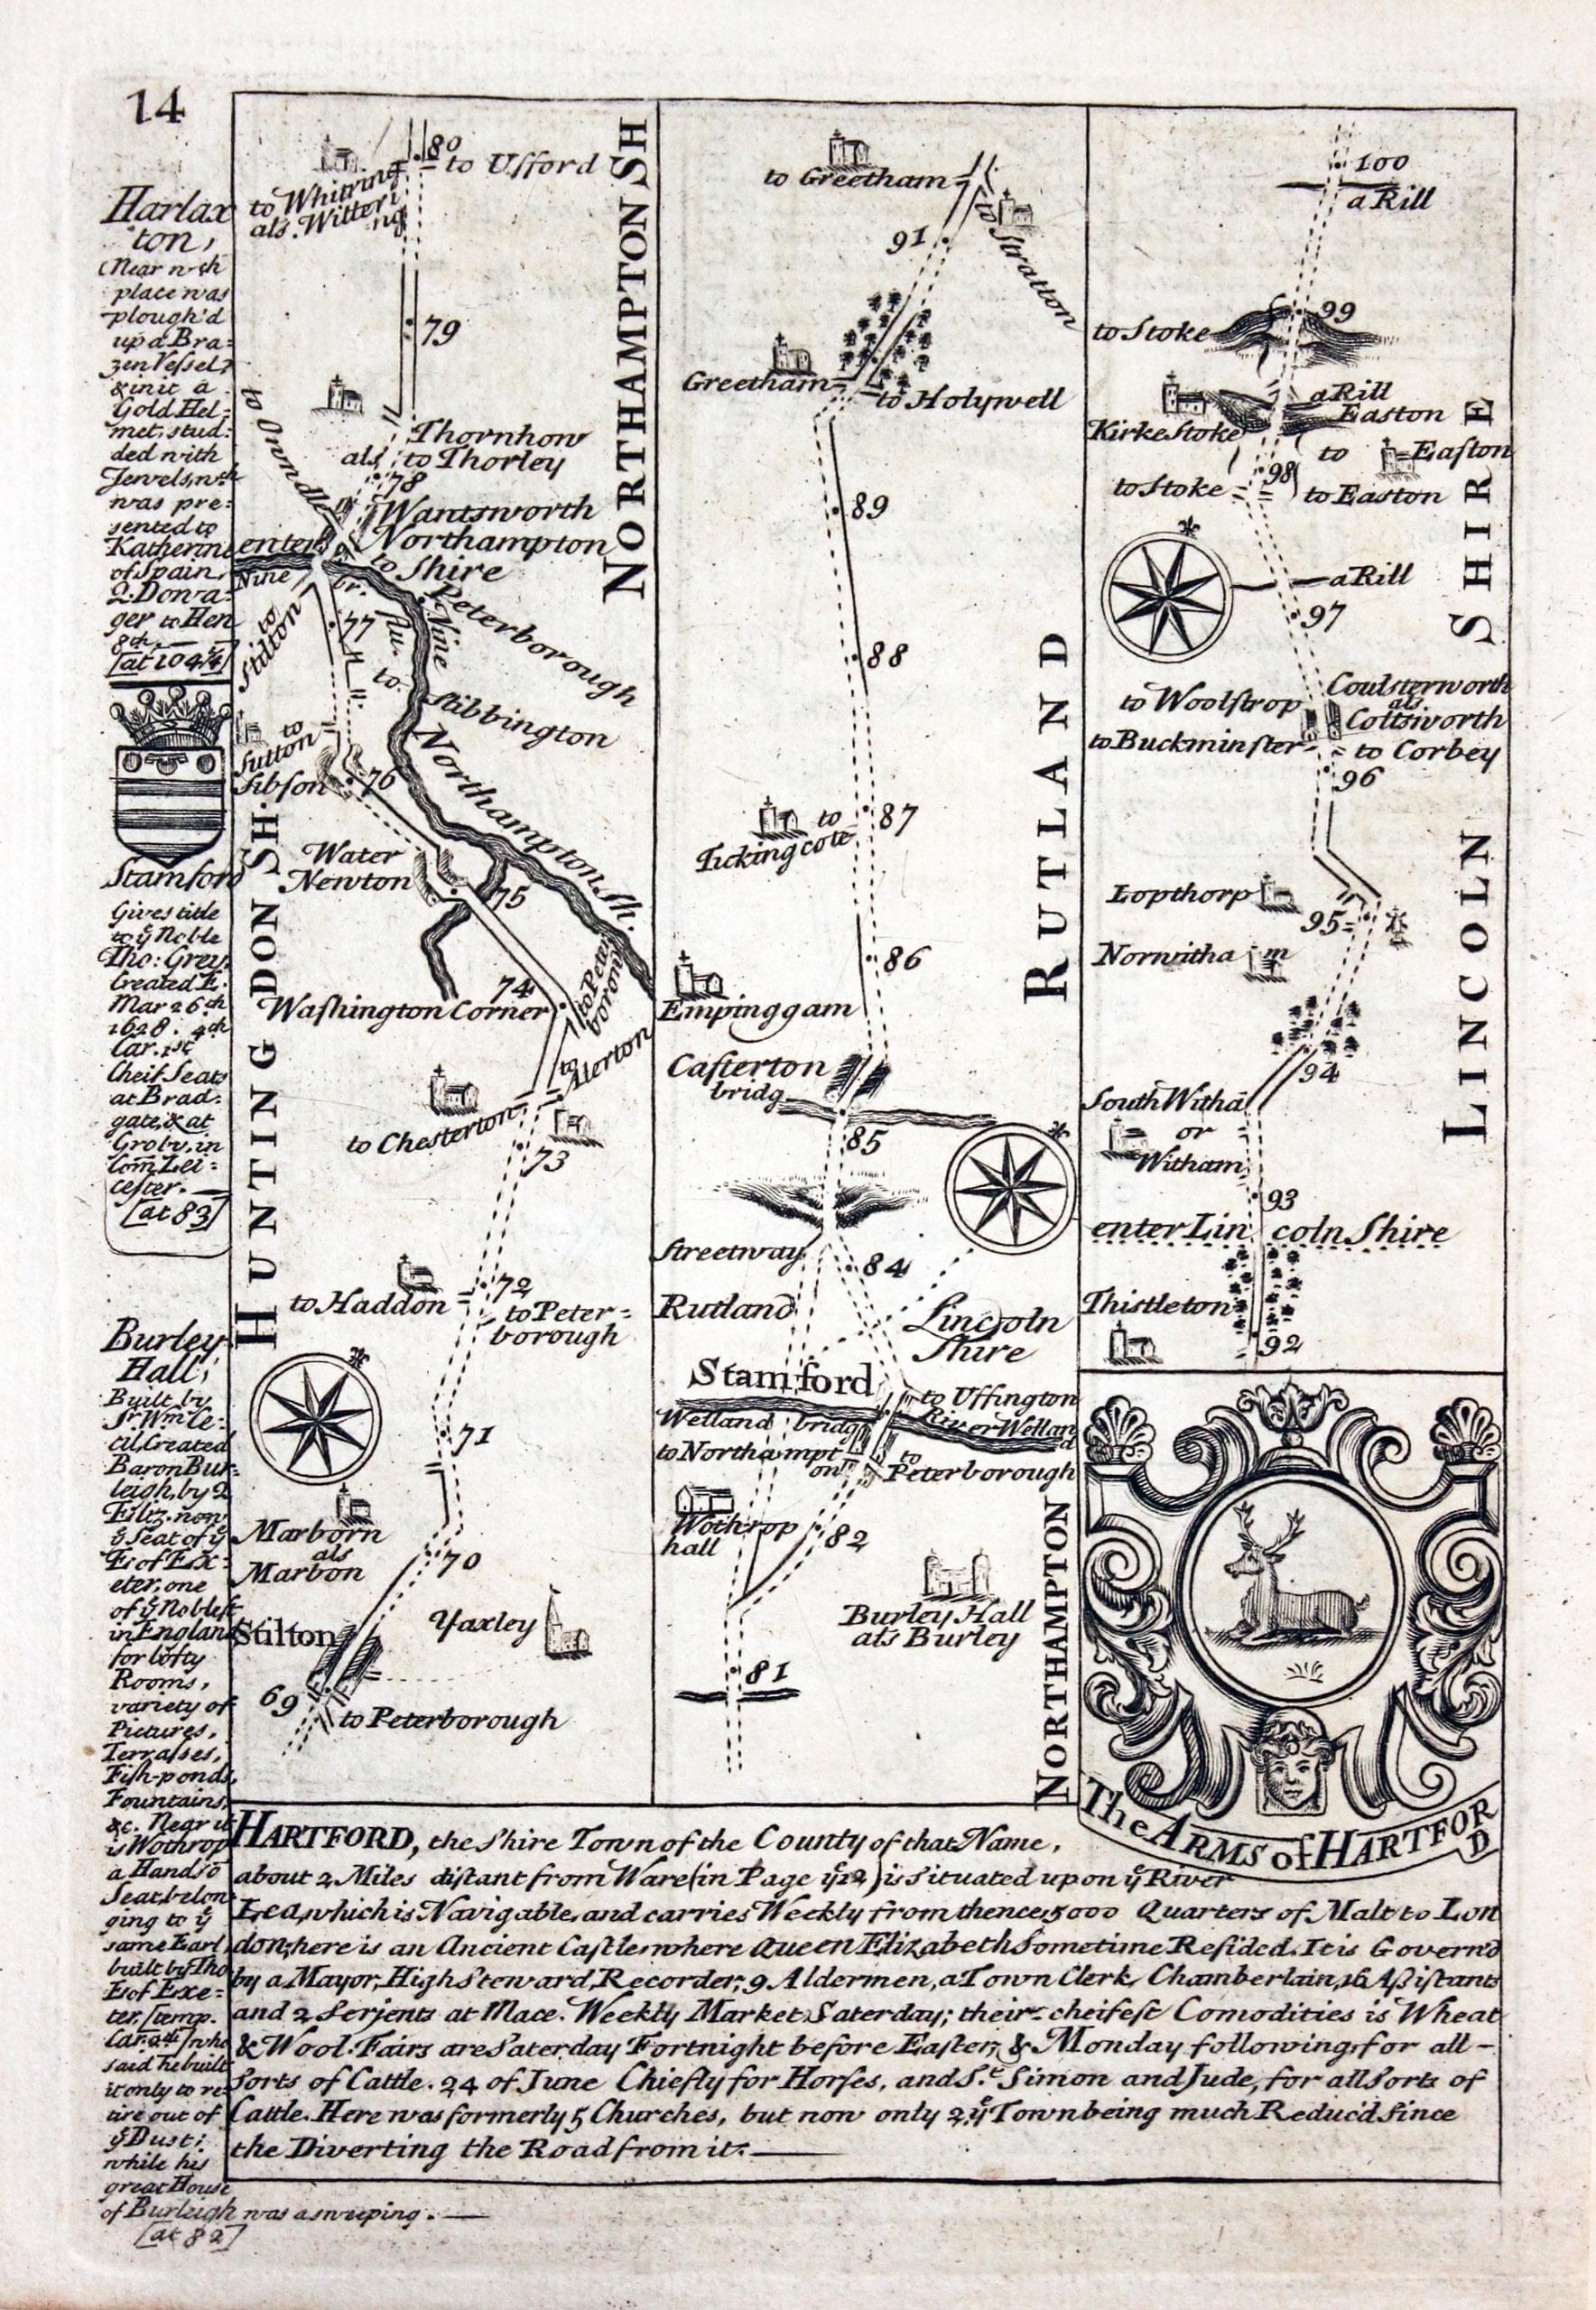 14
Harlax
ton,
(Near wch
place was
plough'd
up a Bra=
zen Vessel,
& in it a
Gold Hel=
met, stud=
ded with
Jewels, wch
was pre=
sented to
Katherine
of Spain,
Q. Dowa=
ger to Hen
8th.
[at 104¼]
Stamford
Gives title
to ye Noble
Tho: Grey,
Created E.
Mar 26th
1628. 4th
Car. 1st
Cheif Seats
at Brad=
gate, & at
Groby, in
Com̄ Lei=
cester.
[at 83]
Burley
Hall,
Built by
Sr Wm Ce=
cil, Created
Baron Bur=
leigh, by Q
Eliz. now
ye Seat of ye
E. of Ex=
eter, one
of ye Noblest
in England
for lofty
Rooms,
variety of
Pictures,
Terrasses,
Fish-ponds,
Fountains,
&c. Near it
is Wothrop
a Handsō
Seat, belon
ging to ye
same Earl
built by Tho.
E. of Exe=
ter, [temp.
Car. 2d] who
said he built
it only to re
tire out of
ye Dust;
while his
great House
of Burleigh was a sweeping.
[at 82]
80
to Ufford
to Whitring
als. Witteri
ng
79
Thornhow
als. to Thorley
78
to Owndle
Wantsworth
enter Northampton
Shire
to Peterborough
Nine br.
flu. Nine
to Stilton
77
to Stibbington
to Sutton
Sibson
76
Northampton Sh.
Water
Newton
75
74
Washington Corner
to Peterborough
to Alerton
to Chesterton
73
72
to Haddon
to Peter=
borough
71
Marborn
als
Marbon
70
Stilton
Yaxley
69
to Peterborough
HUNTINGDON SH.
NORTHAMPTON SH
to Greetham
Stratton
91
Greetham
to Holywell
89
88
87
to
Tickingcote
86
Empinggam
Casterton
bridg
85
Streetway
84
Rutland
Lincoln
Shire
Stamford
to Uffington
Welland bridg
River Welland
to Northampton
to
Peterborough
Wothrop
hall
82
Burley Hall
als Burley
81
RUTLAND
NORTHAMPTON
100
a Rill
99
to Stoke
a Rill
Easton
Kirke Stoke
to Easton
98
to Stoke
to Easton
a Rill
97
to Woolstrop
Coulsterworth
als
Coltsworth
to Buckminster
to Corbey
96
Lopthorp
95
Norwitham
94
South Withā
or
Witham
93
enter Lincoln Shire
Thistleton
92
LINCOLN SHIRE
The ARMS of HARTFORD
HARTFORD, the Shire Town of the County of that Name,
about 2 Miles distant from Ware (in Page ye 12) is Situated upon ye River
Lea, which is Navigable, and carries Weekly from thence 5000 Quarters of Malt to Lon
don; here is an Ancient Castle where Queen Elizabeth Sometime Resided. It is Govern'd
by a Mayor, High Steward, Recorder, 9 Aldermen, a Town Clerk, Chamberlain, 16 Assistants
and 2 Serjents at Mace. Weekly Market Saterday; their cheifest Comodities is Wheat
& Wool. Fairs are Saterday Fortnight before Easter, & Monday following, for all-
Sorts of Cattle. 24 of June Chiefly for Horses, and St. Simon and Jude, for all Sorts of
Cattle. Here was formerly 5 Churches, but now only 2, ye Town being much Reduc'd Since
the Diverting the Road from it.